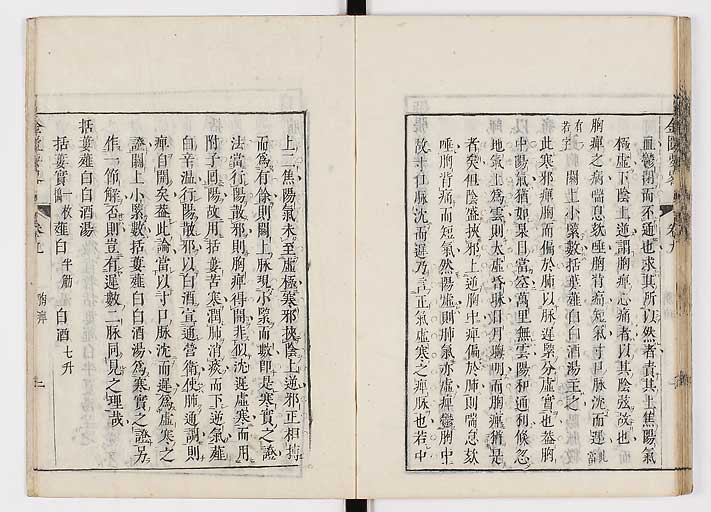 血鬱閉而不通也求其所以然者責其上焦陽氣
極虛下陰上逆謂胸痺心痛者以其陰弦故也
胸痺之病喘息欬唾胸背痛短氣寸口脉沈而遲
關上小緊數括蔞薤白白酒湯主之
此寒邪痺胸而偏於肺以脉遲緊分虛實也蓋胸
中陽氣猶如杲日當空萬里無雲陽和通利倏忽
地氣上爲雲則太虛昏昧日月無明而胸痺猶是
者矣但陰盛挾邪上逆胸中痺偏於肺則喘息欬
唾胸背痛而短氣然陽虛則肺氣亦虛痺鬱胸中
故寸口脉沈而遲乃言正氣虛寒之痺脉也若中
上二焦陽氣未至虛極寒邪挾陰上逆邪正相搏
而爲有餘則關上脉現小緊而數即是寒實之證
法當行陽散邪則胸痺得開非似沈遲虛寒而用
附子回陽故用括蔞苦寒潤肺消痰而下逆氣薤
白辛溫行陽散邪以白酒宣通營衛使肺通調則
痺自開矣蓋此論當以寸口脉沈而遲爲虛寒之
證關上小緊數括蔞薤白白酒湯爲寒實之證另
作一節解否則豈有遲數二脉同見之理哉
括蔞薤白白酒湯
括蔞實一枚 薤白半觔 白酒七升
金匱要略 卷九 胸痺 二